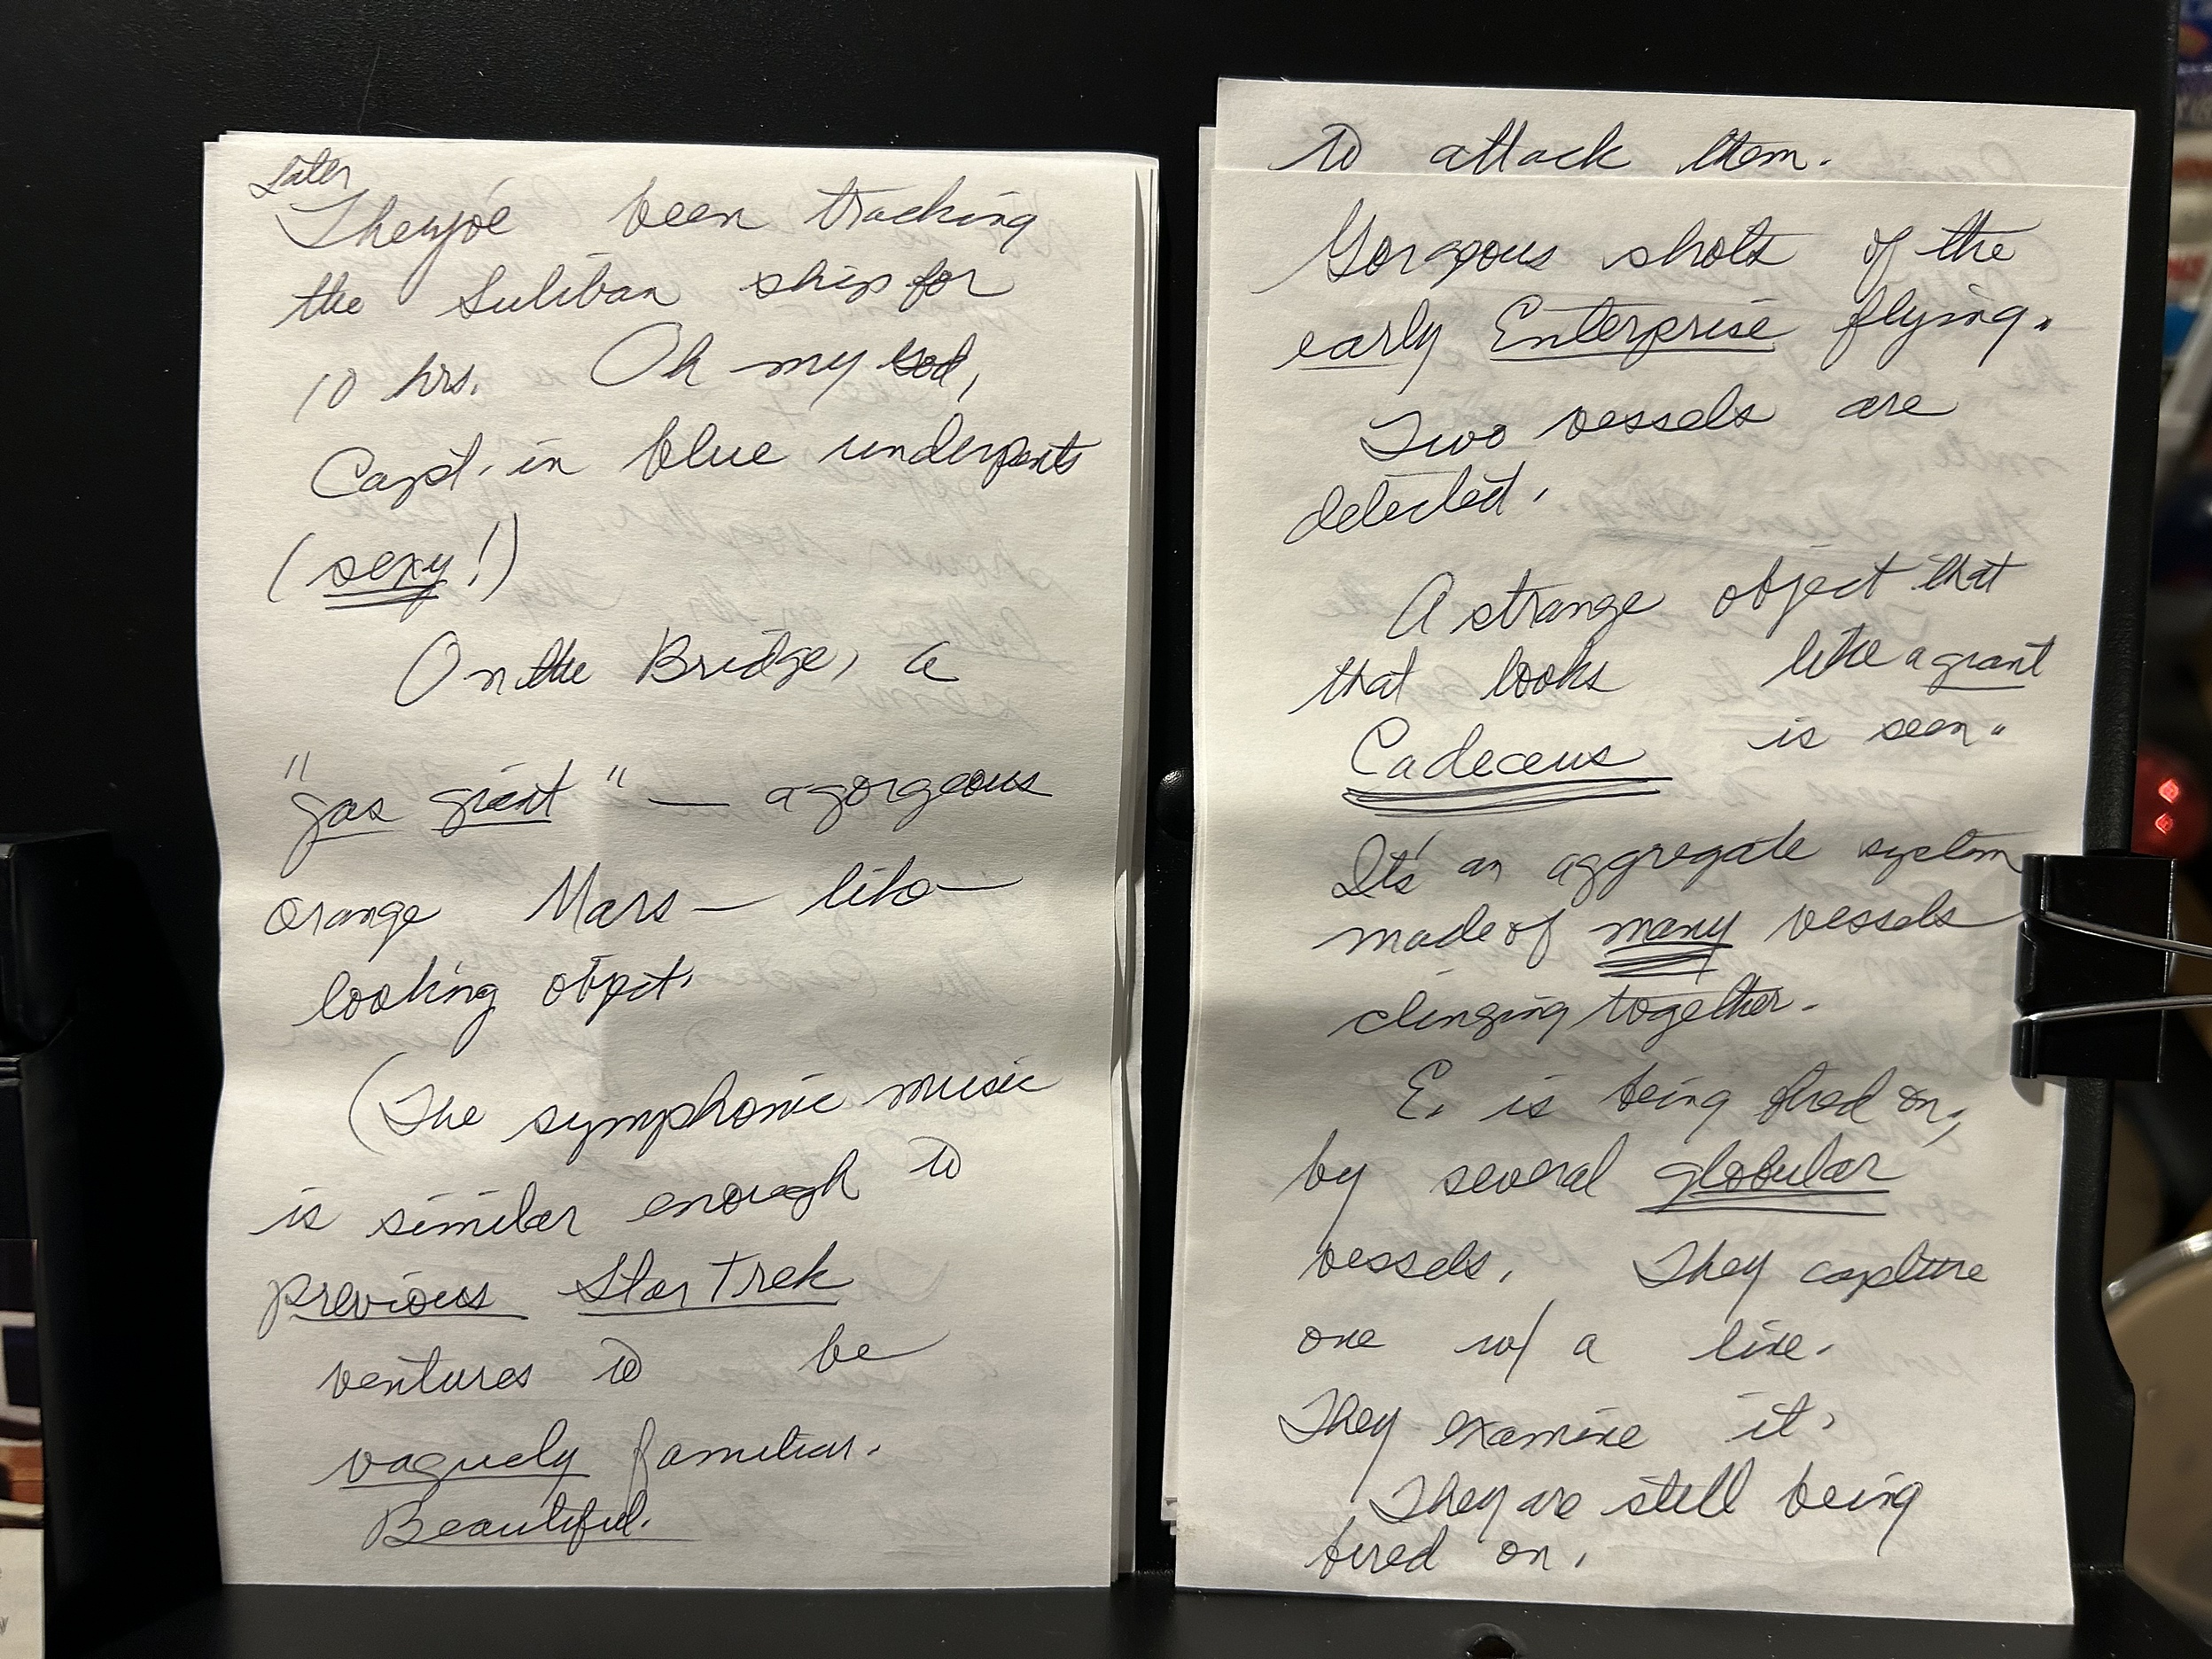 Later
They've been tracking
the Suliban ship for
10 hrs. Oh my God,
Capt. in blue underpants
(sexy!)
On the Bridge, a
"gas giant" — a gorgeous
orange Mars — like
looking object.
(The symphonic music
is similar enough to
previous Star Trek
ventures to be
vaguely familiar.
Beautiful.
to attack them.
Gorgeous shots of the
early Enterprise flying.
Two vessels are
detected.
A strange object that
that looks like a giant
Cadeceus is seen.
It's an aggregate system
made of many vessels
clinging together.
E. is being fired on,
by several globular
vessels. They capture
one w/ a line.
They examine it.
They are still being
fired on.